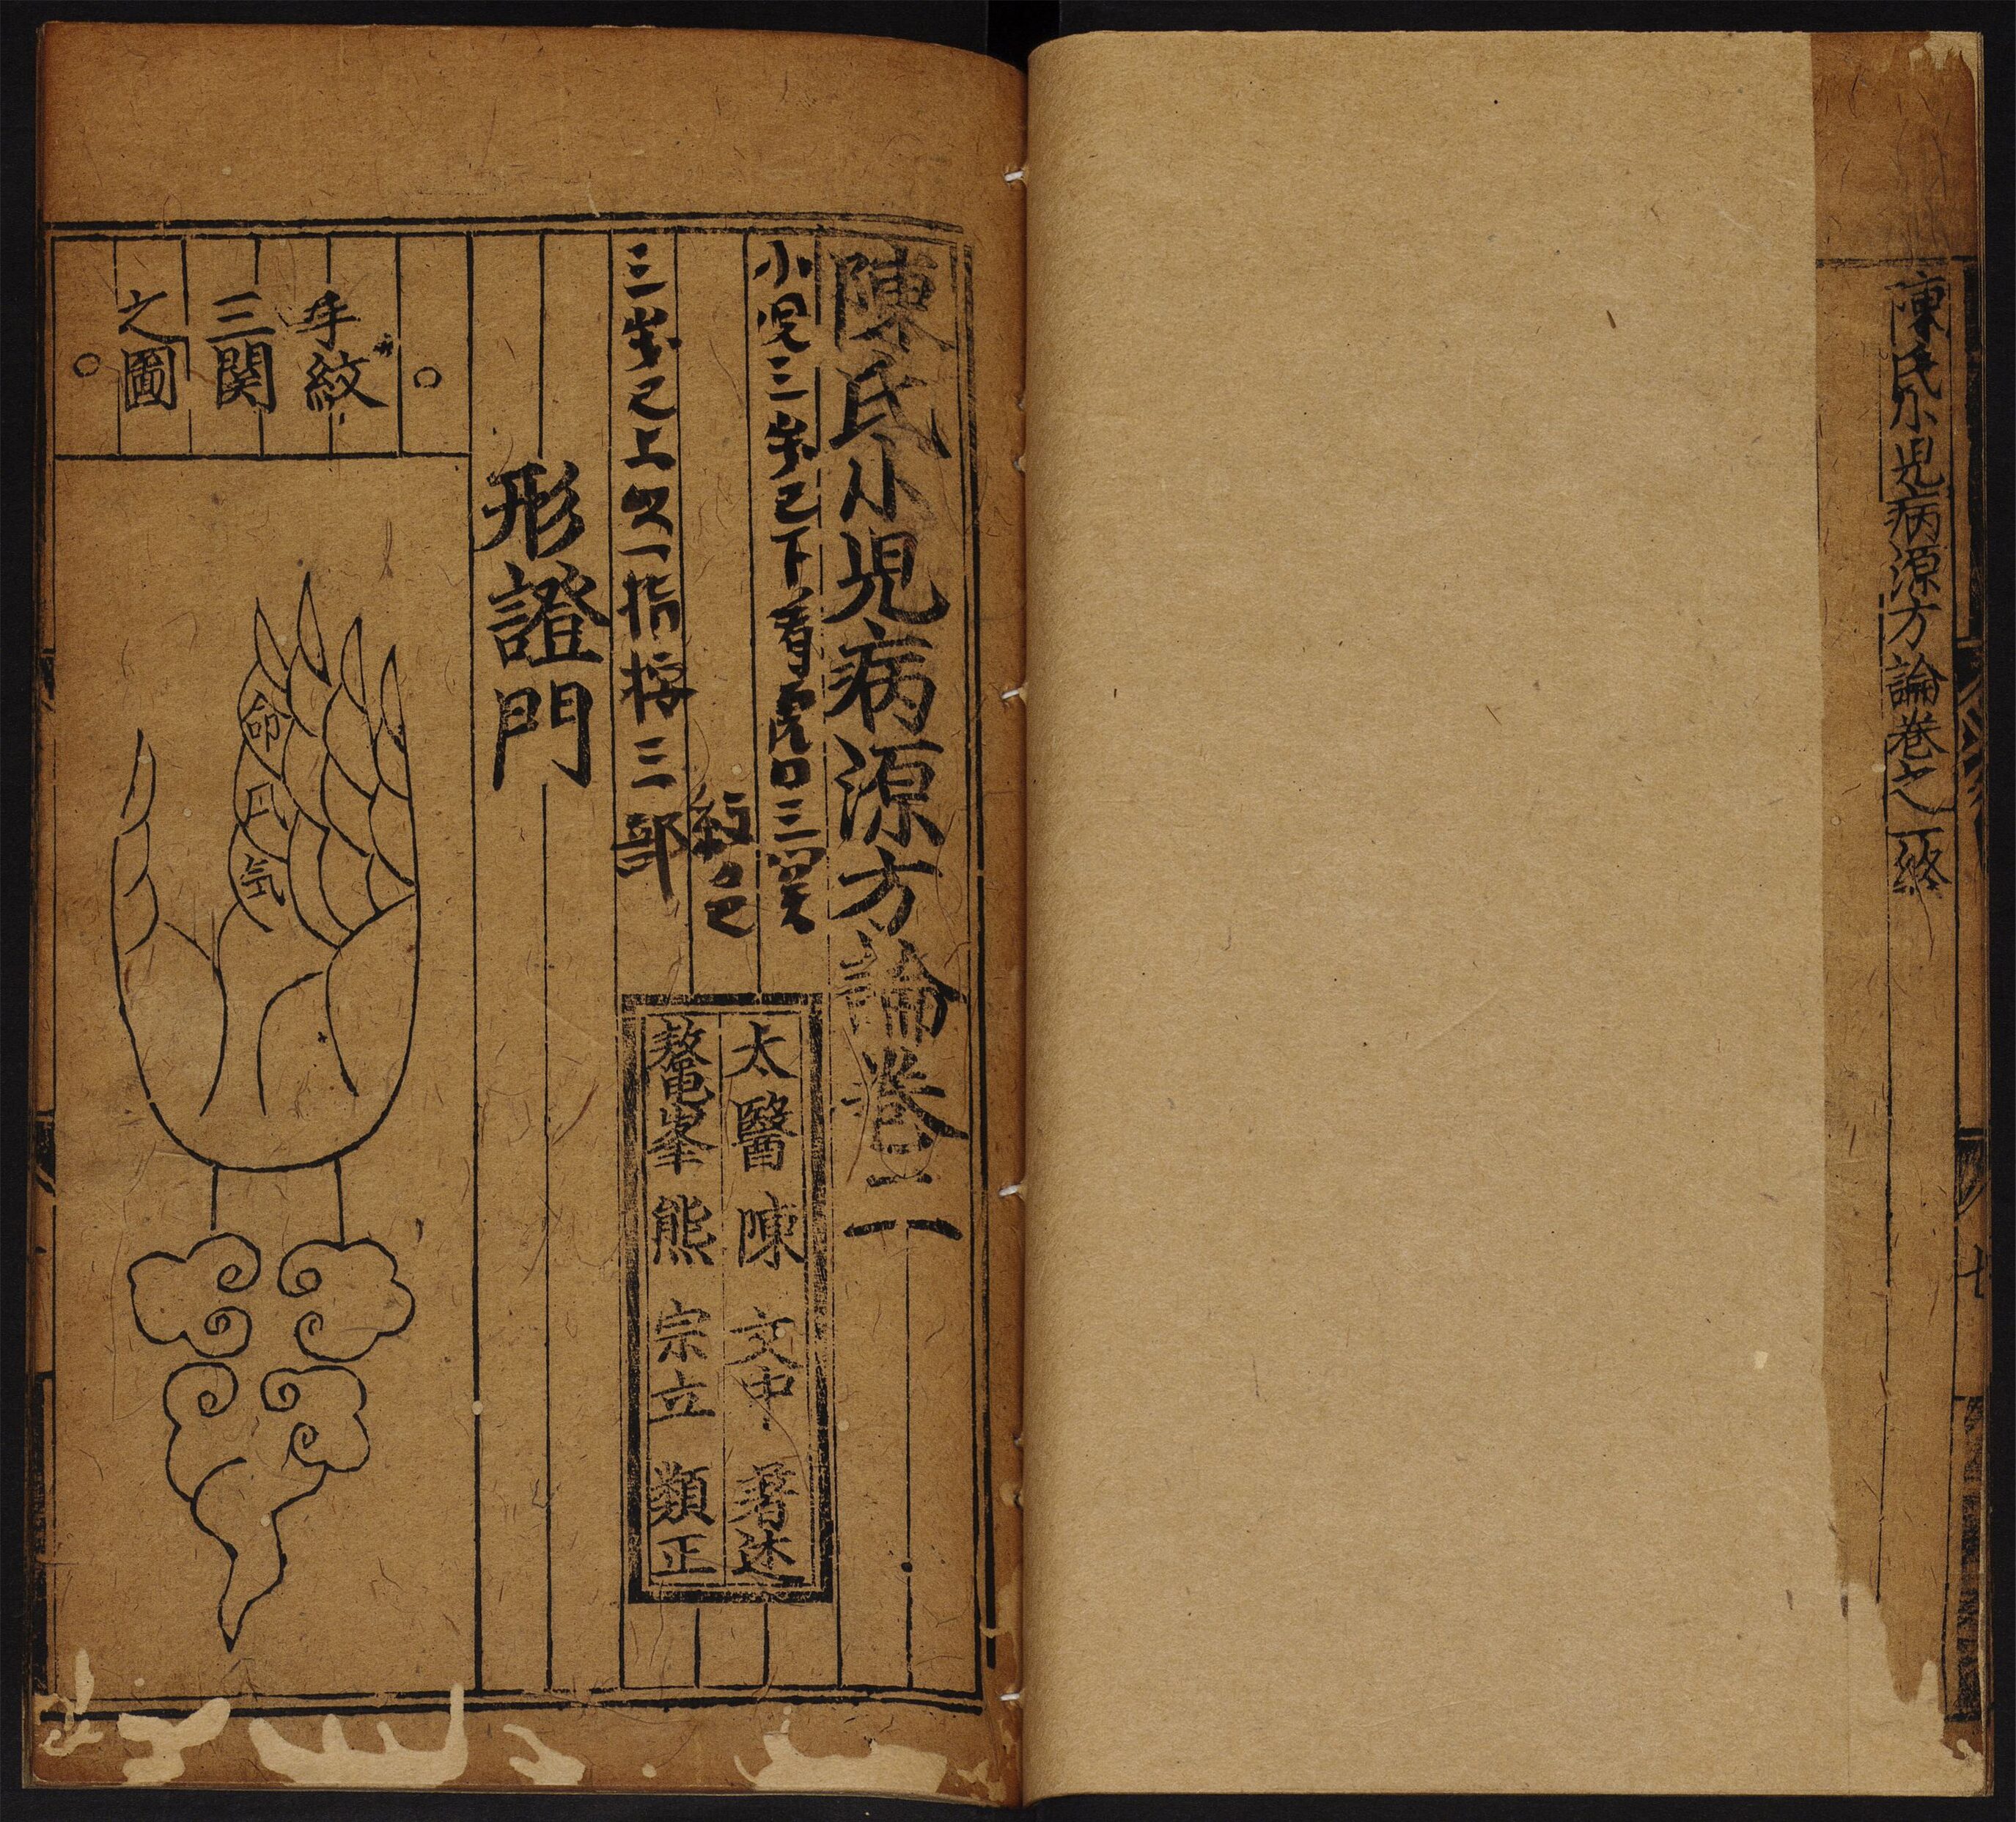 陳氏小児病源方論卷之一終
陳氏小児病源方論卷二
太醫陳文中著述
鼇峯熊宗立類正
小児三岁已下着虎口三関
紋色
三岁已上以一指按三部
形證門
手紋
三関
之圖
命
風
気